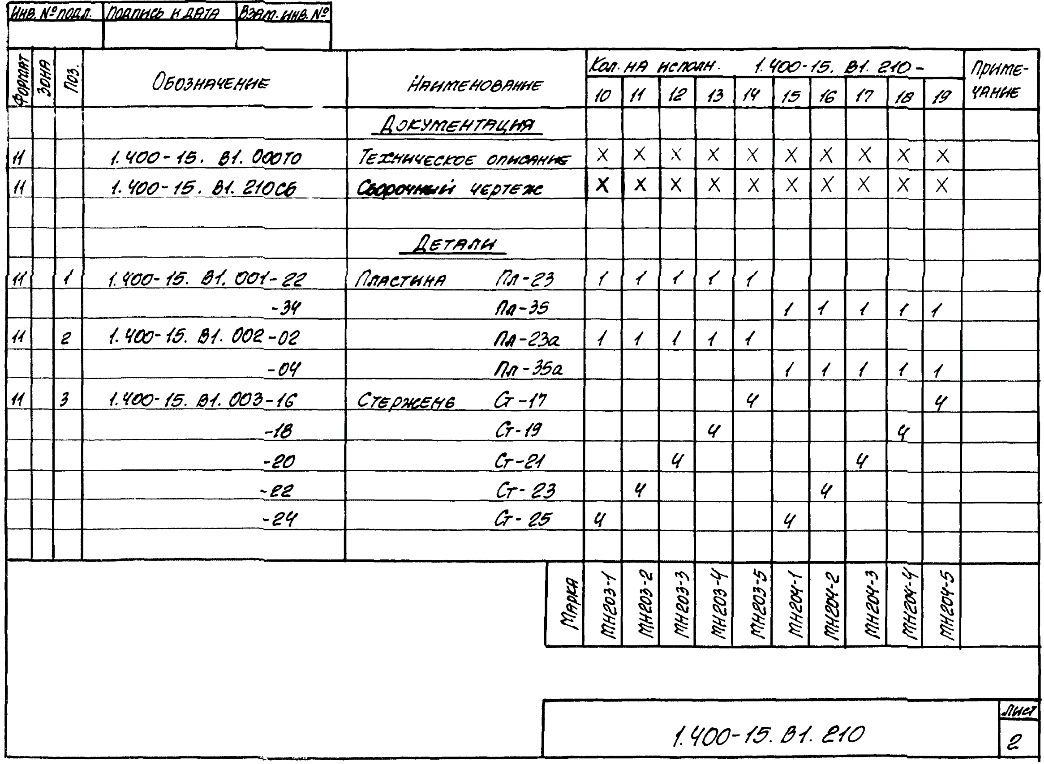 Инв. № подл. Подпись и дата Взам. инв. №
Формат Зона Поз. Обозначение Наименование Кол. на исполн. 1.400-15. В1. 210- Примечание
10 11 12 13 14 15 16 17 18 19
Документация
11 1.400-15. В1. 000ТО Техническое описание X X X X X X X X X X
11 1.400-15. В1. 210СБ Сборочный чертеж X X X X X X X X X X
Детали
11 1 1.400-15. В1. 001-22 Пластина Пл-23 1 1 1 1 1
-34 Пл-35 1 1 1 1 1
11 2 1.400-15. В1. 002-02 Пл-23а 1 1 1 1 1
-04 Пл-35а 1 1 1 1 1
11 3 1.400-15. В1. 003-16 Стержень Ст-17 4 4
-18 Ст-19 4 4
-20 Ст-21 4 4
-22 Ст-23 4 4
-24 Ст-25 4 4
Марка МН203-1 МН203-2 МН203-3 МН203-4 МН203-5 МН204-1 МН204-2 МН204-3 МН204-4 МН204-5
1.400-15. В1. 210
Лист
2